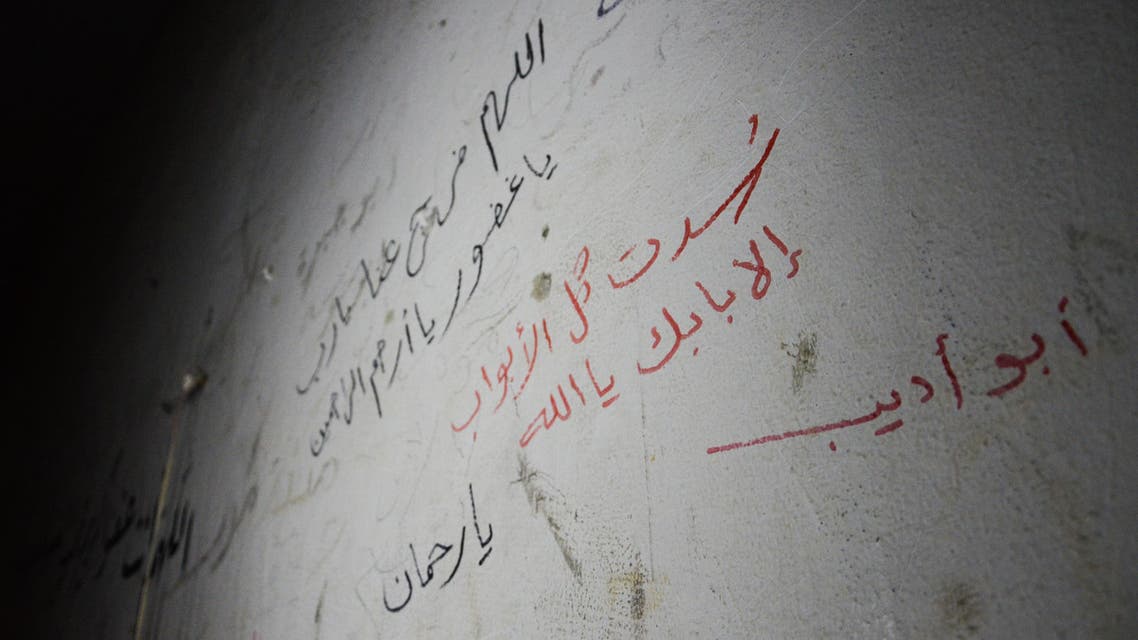 اللهم فرج عنا يارب
يا غفور يا أرحم الراحمين
سُدت كل الأبواب
إلا بابك يا الله
أبو أديب
يا رحمان